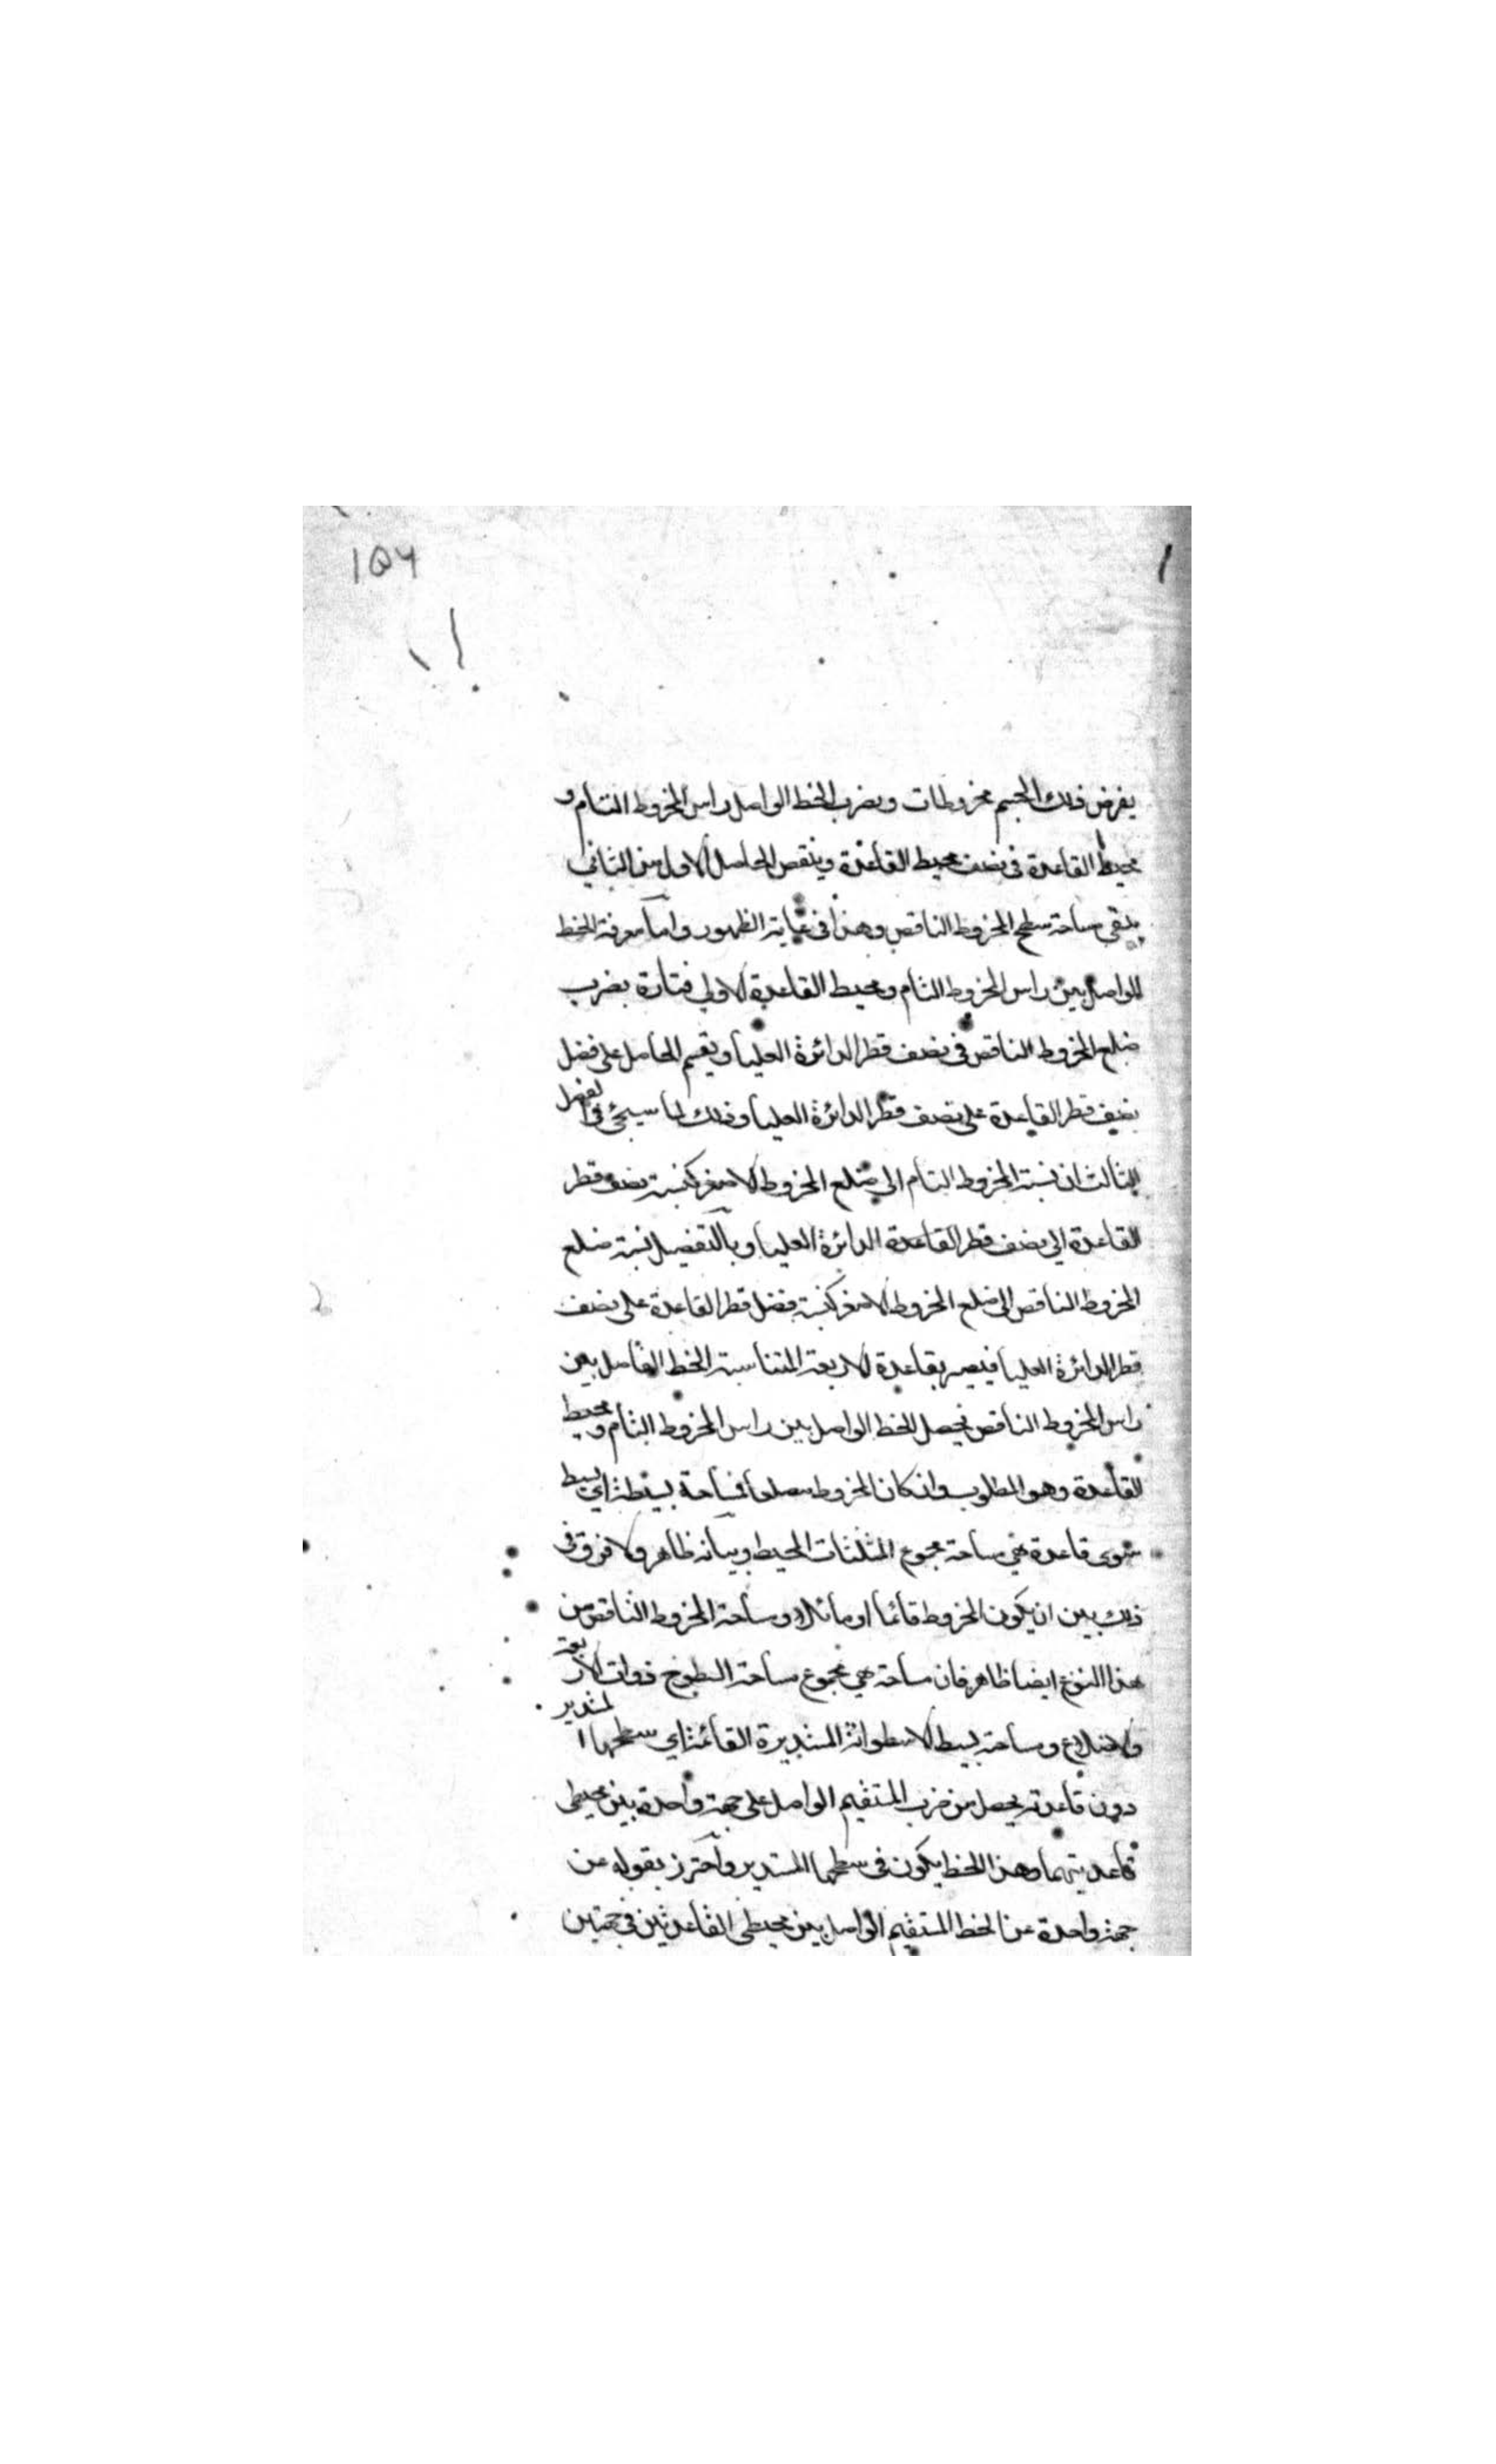 ١٥٦
يفرض ذلك الجسم مخروطات ويضرب الخط الواصل راس المخروط التام و
محيط القاعدة فى نصف محيط القاعدة وينقص الحاصل الاول من الثانى
يبقى مساحة سطح المخروط الناقص وهذا فى غاية الظهور واما معرفة الخط
الواصل بين راس المخروط التام ومحيط القاعدة الاولى فتارة بضرب
ضلع المخروط الناقص فى نصف قطر الدائرة العليا ويقسم الحاصل على فضل
نصف قطر القاعدة على نصف قطر الدائرة العليا وذلك لما سيجئ فى الفصل
الثالث ان نسبة المخروط التام الى ضلع المخروط الاصغر كنسبة نصف قطر
القاعدة الى نصف قطر القاعدة الدائرة العليا وبالتفصيل نسبة ضلع
المخروط الناقص الى ضلع المخروط الاصغر كنسبة فضل قطر القاعدة على نصف
قطر الدائرة العليا فيصير بقاعدة الاربعة المتناسبة الخط الفاصل بين
راس المخروط الناقص نحصل الخط الواصل بين راس المخروط التام ومحيط
القاعدة وهو المطلوب وان كان المخروط مضلعا فمساحة بسيطه اى بسيط
سوى قاعدة هى مساحة مجموع المثلثات المحيط وبيانه ظاهر ولا فرق فى
ذلك بين ان يكون المخروط قائما او مائلا ومساحة المخروط الناقص من
هذا النوع ايضا ظاهر فان مساحة هى مجموع مساحة السطوح ذوات الاربعة
والاضلاع ومساحة بسيط الاسطوانة المستديرة القائمة اى سطحها المستدير
دون قاعدته يحصل من ضرب المستقيم الواصل على جهة واحدة بين محيطى
قاعديتهما وهذا الخط يكون فى سطحها المستدير واحترز بقوله عن
جهة واحدة عن الخط المستقيم الواصل بين محيطى القاعدتين فى جهتين